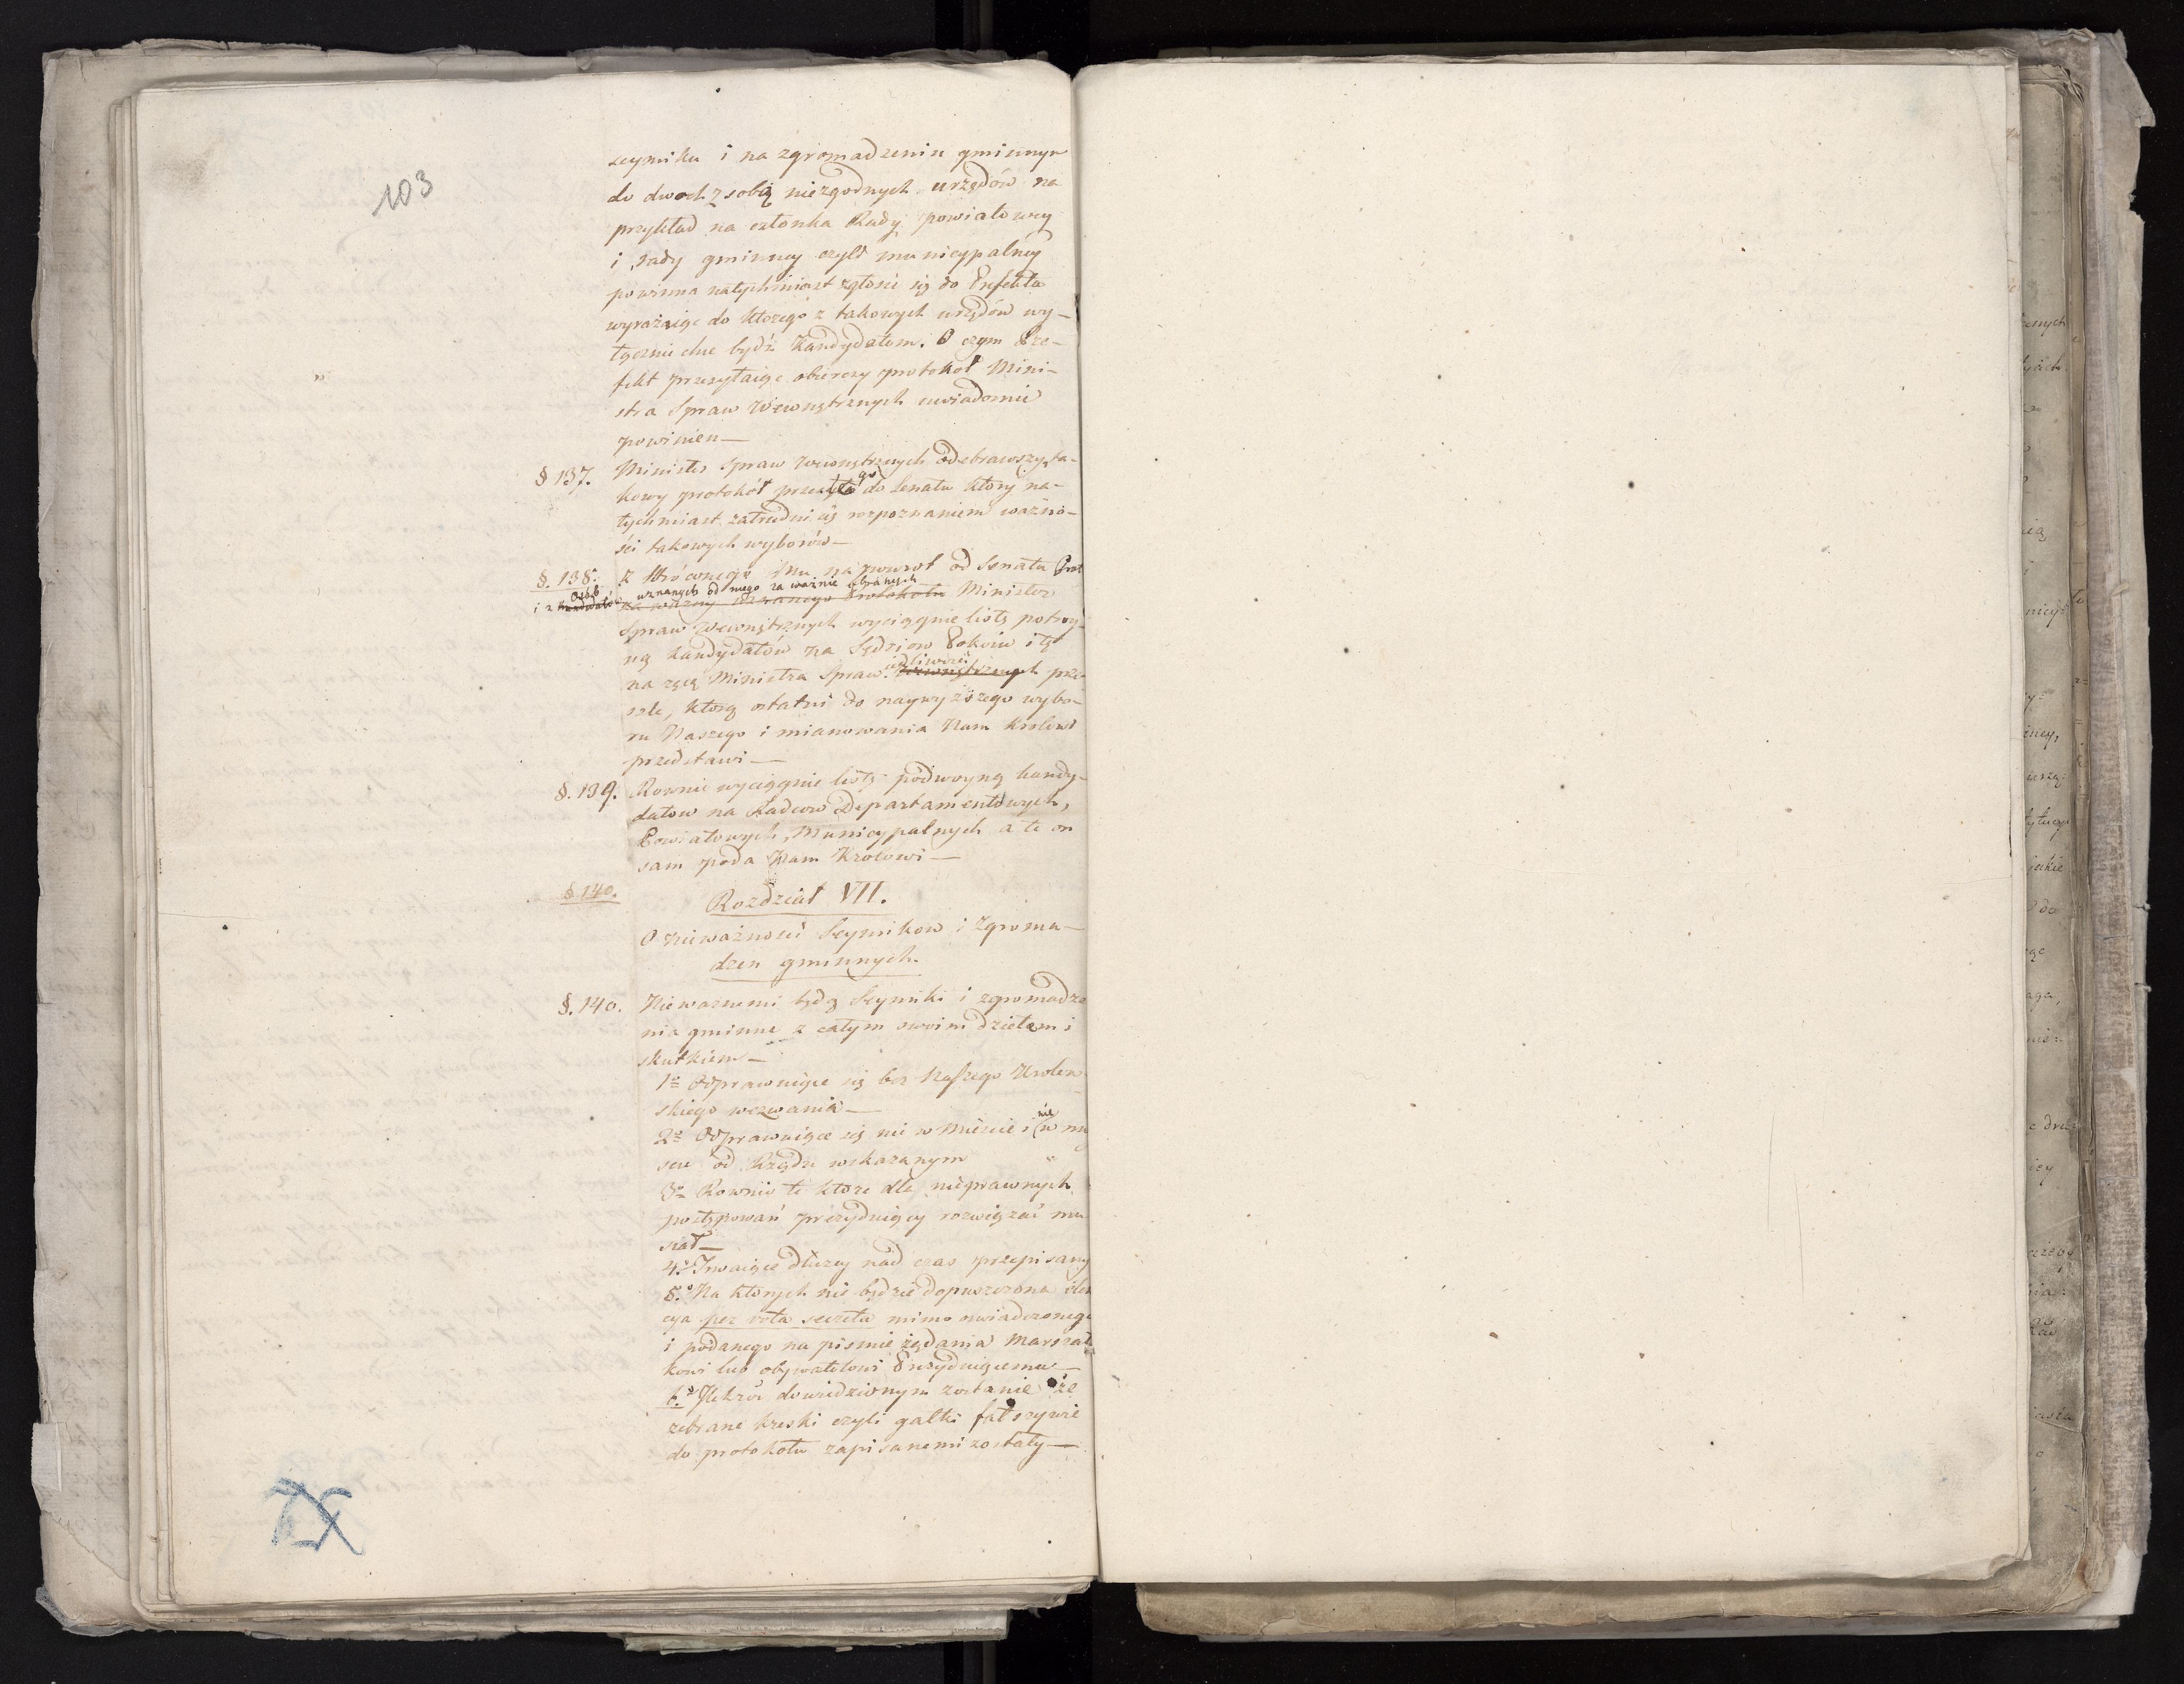 103
seymiku i na zgromadzeniu gminnym
do dwoch z sobą niezgodnych urzędów na
przykład na członka Rady powiatowey
i rady gminney czyli municypalney
powinna natychmiast zgłosić się do Prefekta
wyrażaiąc do którego z takowych urzędów wy-
łącznie chce bydź Kandydatem. O czym Pre-
fekt przesyłaiąc obierczy protokoł Mini-
stra Spraw Wewnętrznych uwiadomić
powinien—
§ 137. Minister Spraw Wewnętrznych odebrawszy ta-
kowy protokół prześle go do Senatu który na-
tychmiast zatrudni się rozpoznaniem ważno-
ści takowych wyborów—
§. 138. Z Wróconego mu na powrot od Senatu Prot
i z Osób uznanych od niego za ważnie obranych
za ważny uznanego Protokołu Minister
Spraw Wewnętrznych wyciągnie listę potroy-
ną kandydatów na Sędziow Pokoiu i tę
na ręcę Ministra Spraw Wewnętrznych prze-
sprawiedliwości
szle, którą ostatni do naywyższego wybo-
ru Naszego i mianowania Nam Krolowi
przedstawi—
§. 139. Rownie wyciągnie listę podwoyną kandy-
datow na Radcow Departamentowych,
Powiatowych, Municypalnych a te on
sam poda Nam Krolowi—
§ 140.
Rozdział VII.
O nieważności Seymikow i Zgroma-
dzen gminnych.
§. 140. Nieważnemi będą Seymiki i zgromadze
nia gminne z całym swoim dziełem i
skutkiem—
1o Odprawuiące się bez Naszego Krolew
skiego wezwania—
2o Odprawuiące się nie w Mieście i nie w miey
scu od Rządu wskazanym
3o Rownie te ktore dla nieprawnych
postępowań prezyduiący rozwiązać mu
siał—
4o Trwaiące dłużey nad czas przepisany
5o Na ktorych nie będzie dopuszczona elek
cya per vota secreta mimo oswiadczonego
i podanego na pismie żądania Marszał
kowi lub obywatelowi Prezyduiącemu—
6o Ilekroć dowiedzionym zostanie że
zebrane kreski czyli gałki fałszywie
do protokołu zapisanemi zostały—